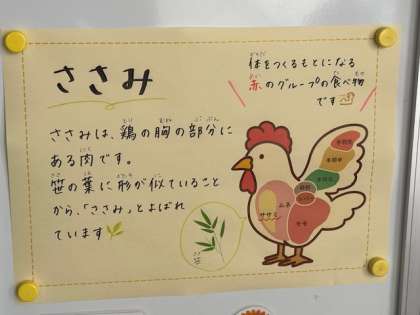 ささみ
体をつくるもとになる
赤のグループの食べ物
です
ささみは、鶏の胸の部分に
ある肉です。
笹の葉に形が似ていること
から、「ささみ」とよばれ
ています
手羽先
手羽中
手羽元
ムネ
ササミ
モモ